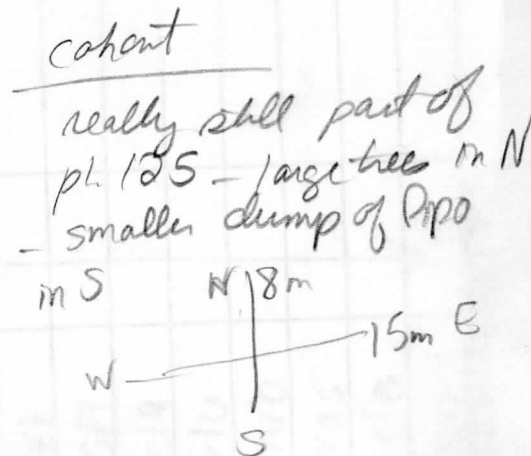 cohort
really still part of
pl. 125 - large trees in N
- smaller clump of Pipo
in S
N 8m
W 15m E
S